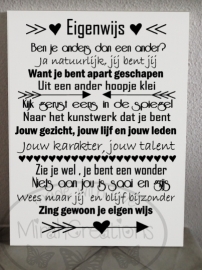 Eigenwijs
Ben je anders dan een ander?
Ja natuurlijk, jij bent jij
Want je bent apart geschapen
Uit een ander hoopje klei
Kijk gerust eens in de spiegel
Naar het kunstwerk dat je bent
Jouw gezicht, jouw lijf en jouw leden
Jouw karakter, jouw talent
Zie je wel , je bent een wonder
Niets aan jou is saai en grijs
Wees maar jij en blijf bijzonder
Zing gewoon je eigen wijs